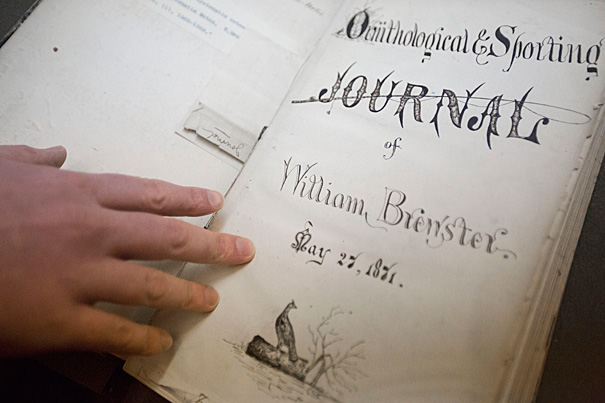 Journal
Ornithological & Sporting
JOURNAL
of
William Brewster.
May 27, 1871.